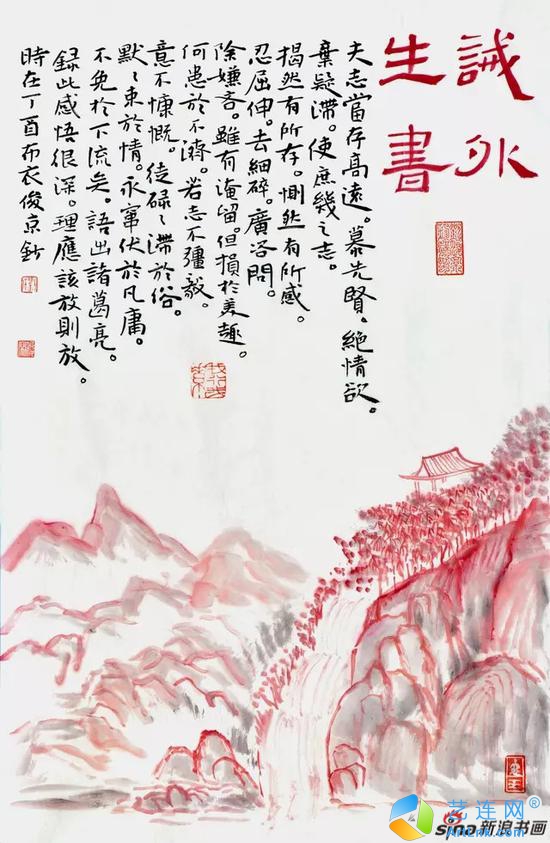 誡外
生書
夫志當存高遠。慕先賢、絕情欲。
棄疑滯。使庶幾之志。
揭然有所存。惻然有所感。
忍屈伸。去細碎。廣咨問。
除嫌吝。雖有淹留。但損於美趣。
何患於不濟。若志不彊毅。
意不慷慨。徒碌々滯於俗。
默々束於情。永竄伏於凡庸。
不免於下流矣。語出諸葛亮。
錄此感悟很深。理應該放則放。
時在丁酉布衣俊京鈔
艺连网®
sina新浪书画